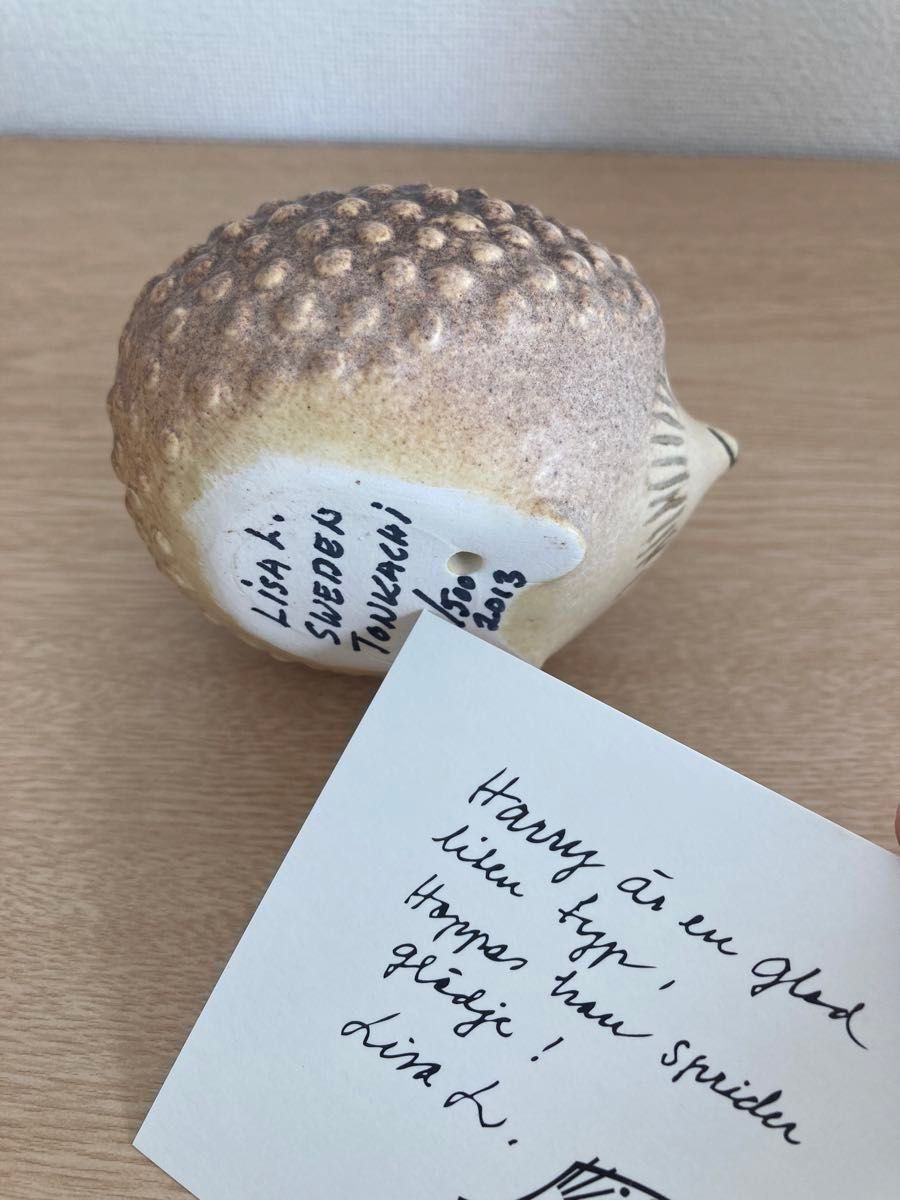 LISA L.
SWEDEN
TONKACHI
/500
2013
Harry är en glad
liten typ,
Hoppas han sprider
glädje!
Lisa L.